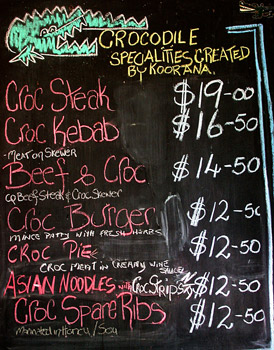 CROCODILE
SPECIALITIES CREATED
BY KOORANA.
Croc Steak $19-00
Croc Kebab $16-50
-Meat on Skewer
Beef & Croc $14-50
Beef Steak & Croc Skewer
Croc Burger $12-50
MINCE PATTY WITH FRESH HERBS
CROC PIE $12-50
CROC MEAT IN CREAMY WINE SAUCE
ASIAN NOODLES with CROC STRIPS $12-50
Croc Spare Ribs $12-50
Marinated in Honey/Soy